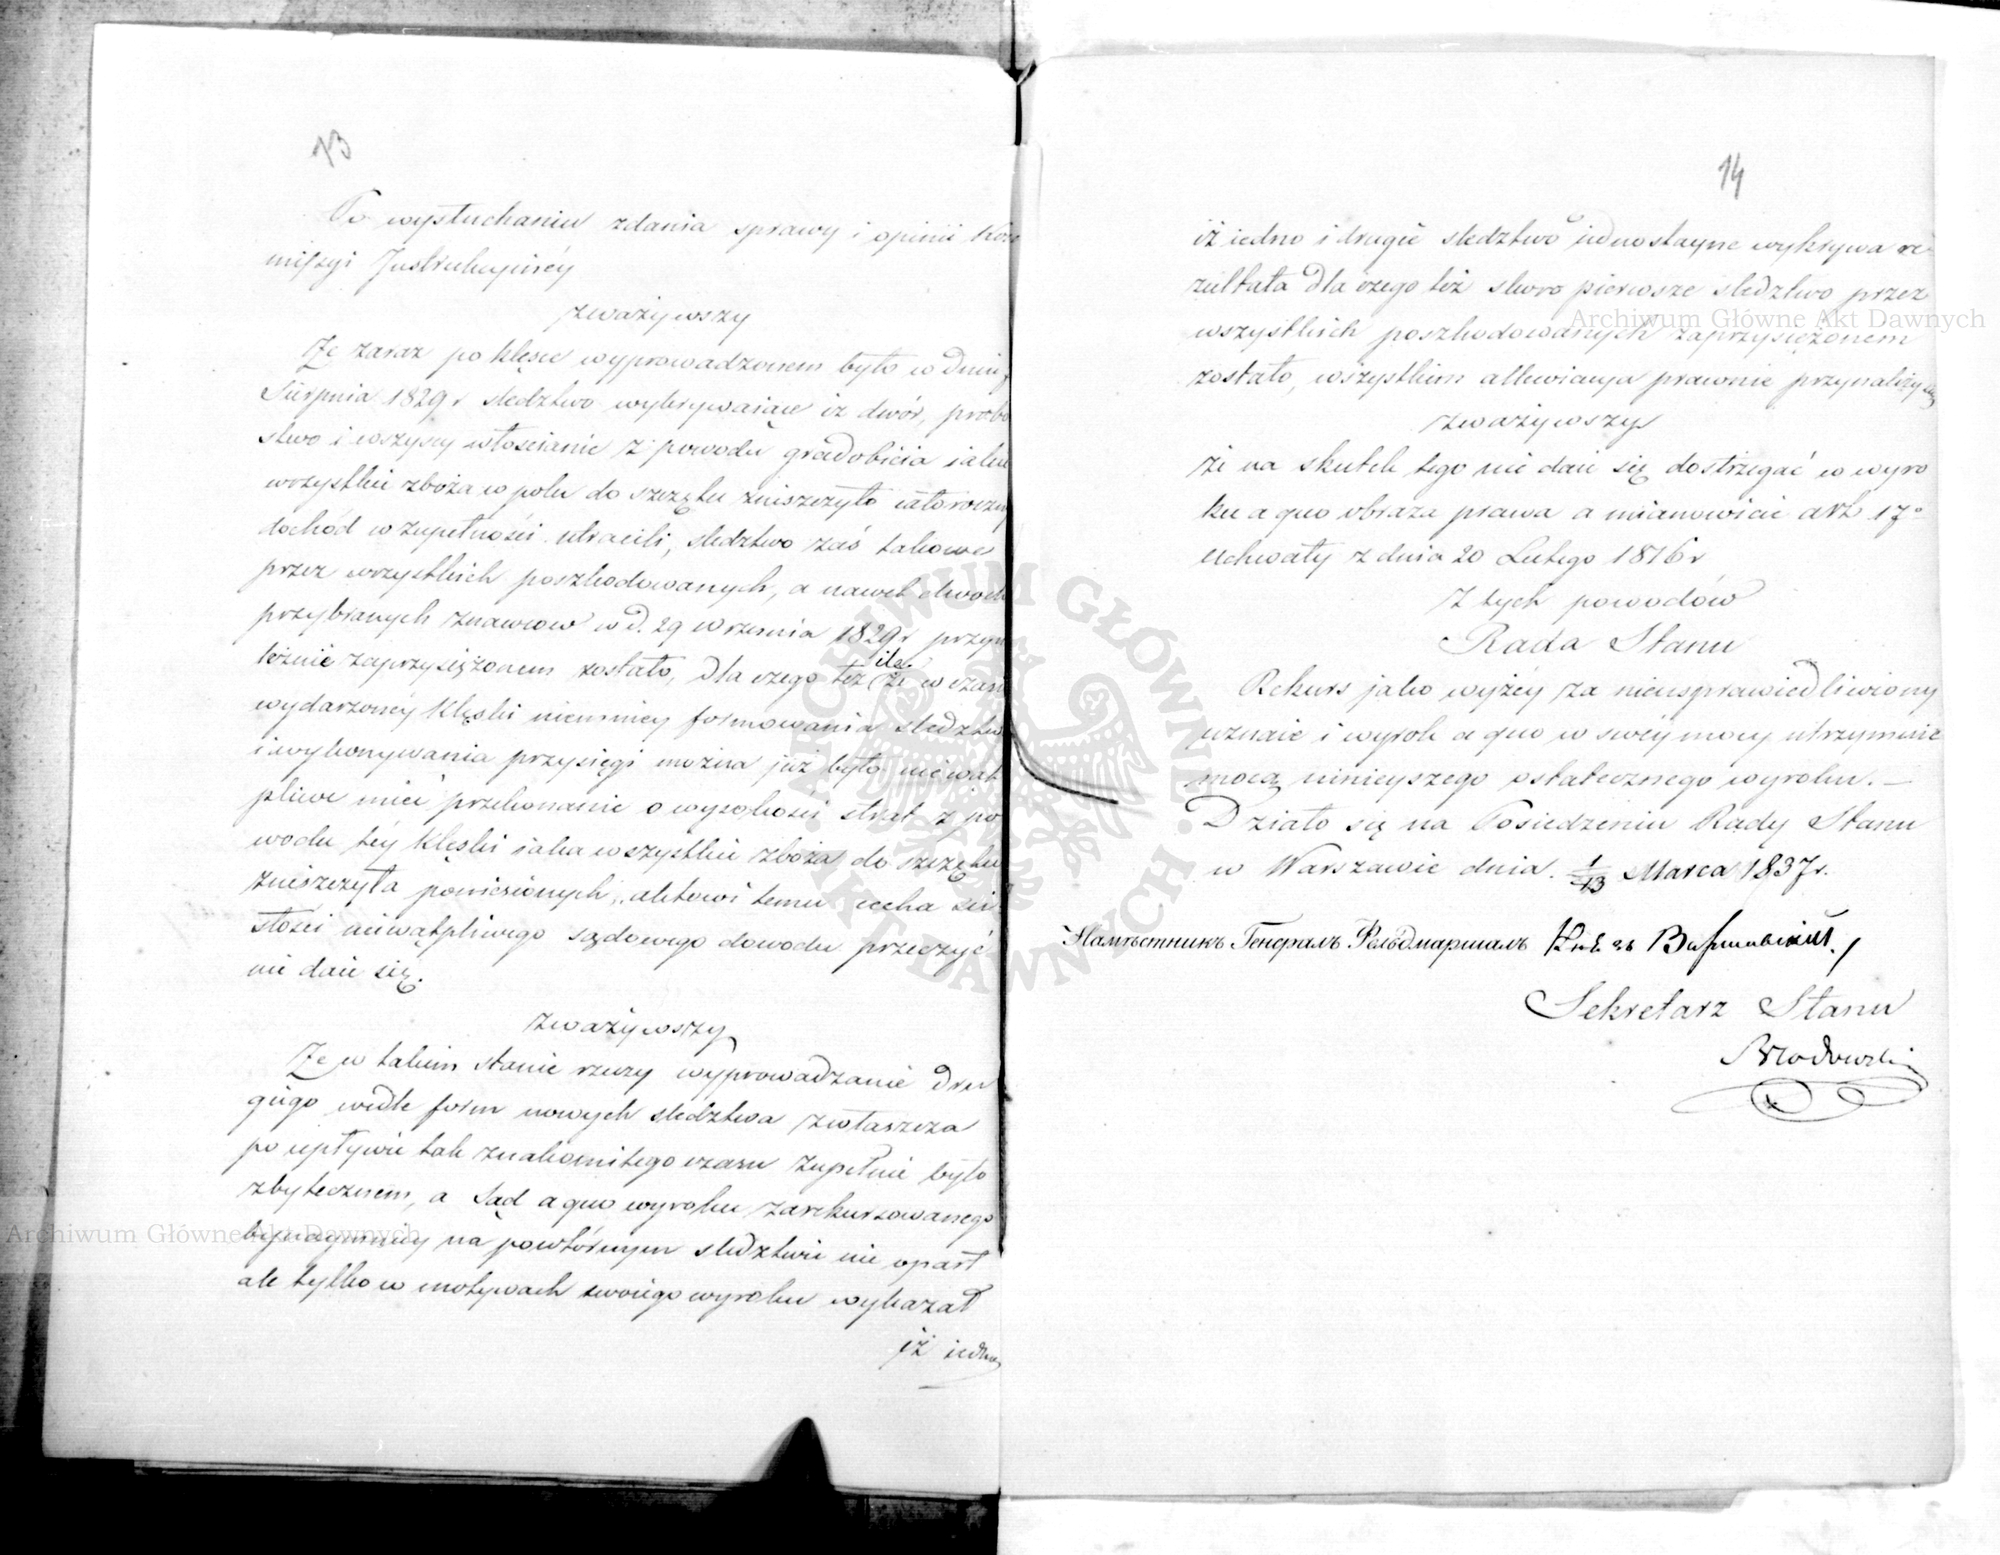 13
Po wysłuchaniu zdania sprawy i opinii Kom
missyi Instrukcyinéy
zważywszy
Że zaraz po klęsce wyprowadzonem było w dniu
Sierpnia 1829 r sledztwo wykrywaiące iż dwór, probo
stwo i wszyscy włościanie z powodu gradobicia iakie
wszystkie zboża w polu do szczętu zniszczyło całoroczny
dochód w zupełności utracili, sledztwo zaś takowe
przez wszystkich poszkodowanych, a nawet dwoch
przybranych znawcow w d. 29 Września 1829 r przyna
leżnie zaprzysiężonem zostało, dla czego też ile że w czasie
wydarzonéy klęski niemniey formowania sledztwa
i wykonywania przysięgi można już było niewąt
pliwe mieć przekonanie o wysokości strat z po
wodu téy klęski iaka wszystkie zboża do szczętu
zniszczyła poniesionych, aktowi temu cecha ści
słości niewątpliwego sądowego dowodu przeczyć
nie daie się.
zważywszy
Że w takim stanie rzeczy wyprowadzanie dru
giego wedle form nowych sledztwa zwłaszcza
po upływie tak znakomitego czasu zupełnie było
zbytecznem, a Sąd a quo wyroku zarekursowanego
bynaymniey na powtórnym sledztwie nie oparł
ale tylko w motywach swoiego wyroku wykazał
iż iedno
14
iż iedno i drugie sledztwo iednostayne wykrywa re-
zultata dla czego też skoro pierwsze sledztwo przez
wszystkich poszkodowanych zaprzysiężonem
zostało, wszystkim allewiacya prawnie przynależy się
zważywszy
że na skutek tego nie daie się dostrzegać w wyro
ku a quo obraza prawa a mianowicie art. 17°
Uchwały z dnia 20 Lutego 1816 r
Z tych powodów
Rada Stanu
Rekurs jako wyżéy za nieusprawiedliwiony
uznaie i wyrok a quo w swéy mocy utrzymuie
mocą ninieyszego ostatecznego wyroku. —
Działo się na Posiedzeniu Rady Stanu
w Warszawie dnia 1/13 Marca 1837 r.
Намѣстникъ Генералъ Фельдмаршалъ Князь Варшавскій
Sekretarz Stanu
Brodowski
Archiwum Główne Akt Dawnych
Archiwum Główne Akt Dawnych
ARCHIWUM GŁÓWNE
AKT DAWNYCH